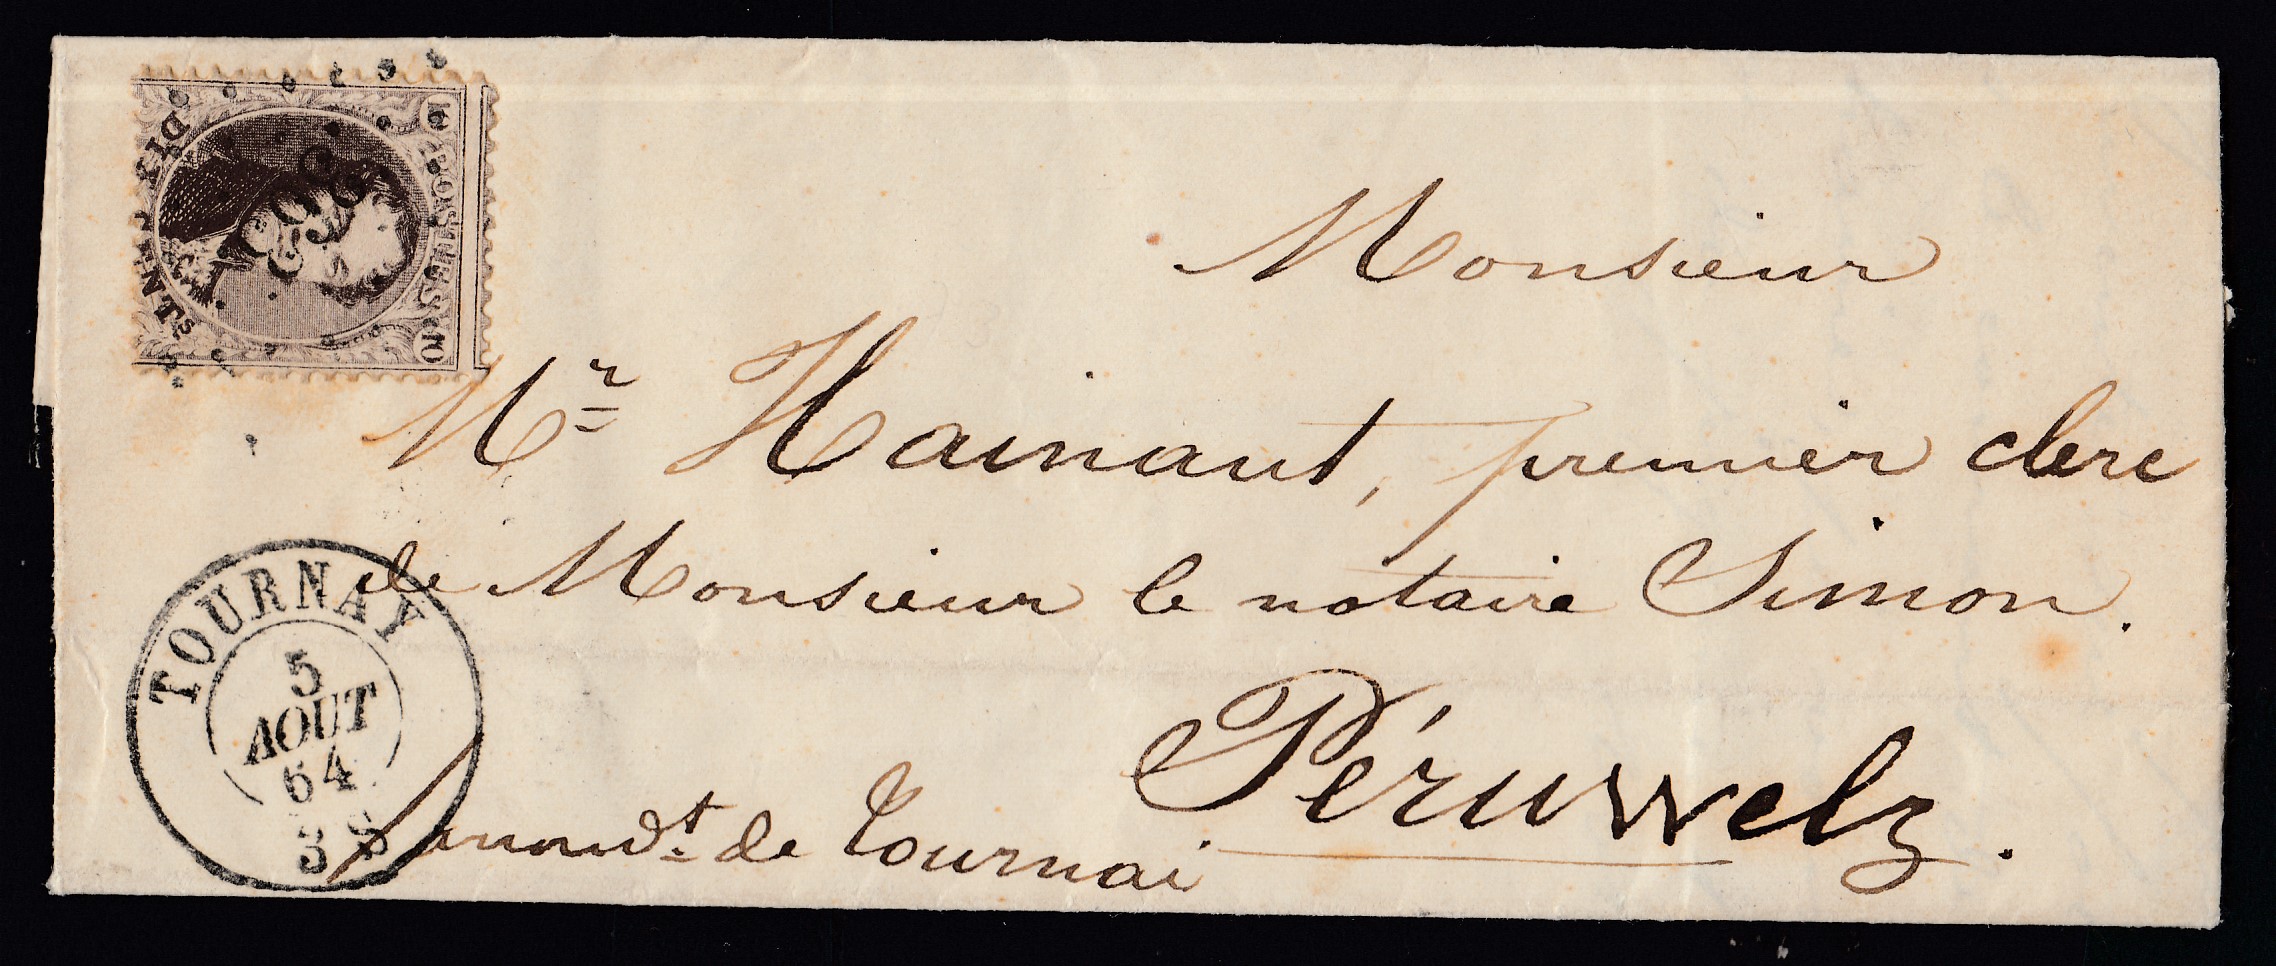 POSTES
10
10
DIX CENTS
Monsieur
Mr Hainaut, premier clerc
de Monsieur le notaire Simon.
Péruwelz.
arrondt de Tournai
TOURNAY
5
AOUT
64
3 S